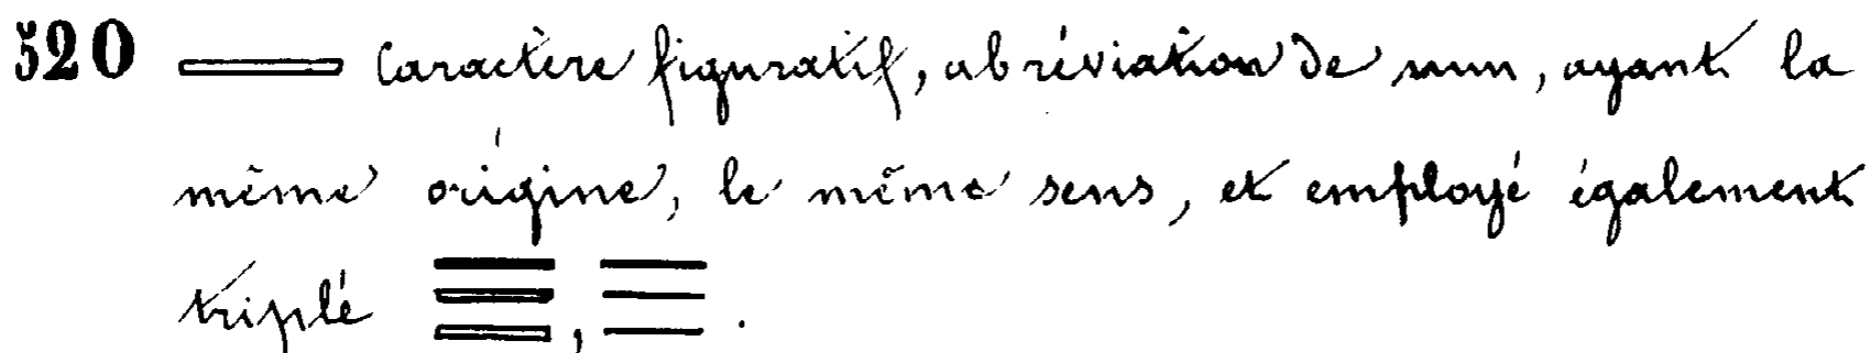 520 caractère figuratif, abréviation de mm, ayant la
même origine, le même sens, et employé également
triplé , .